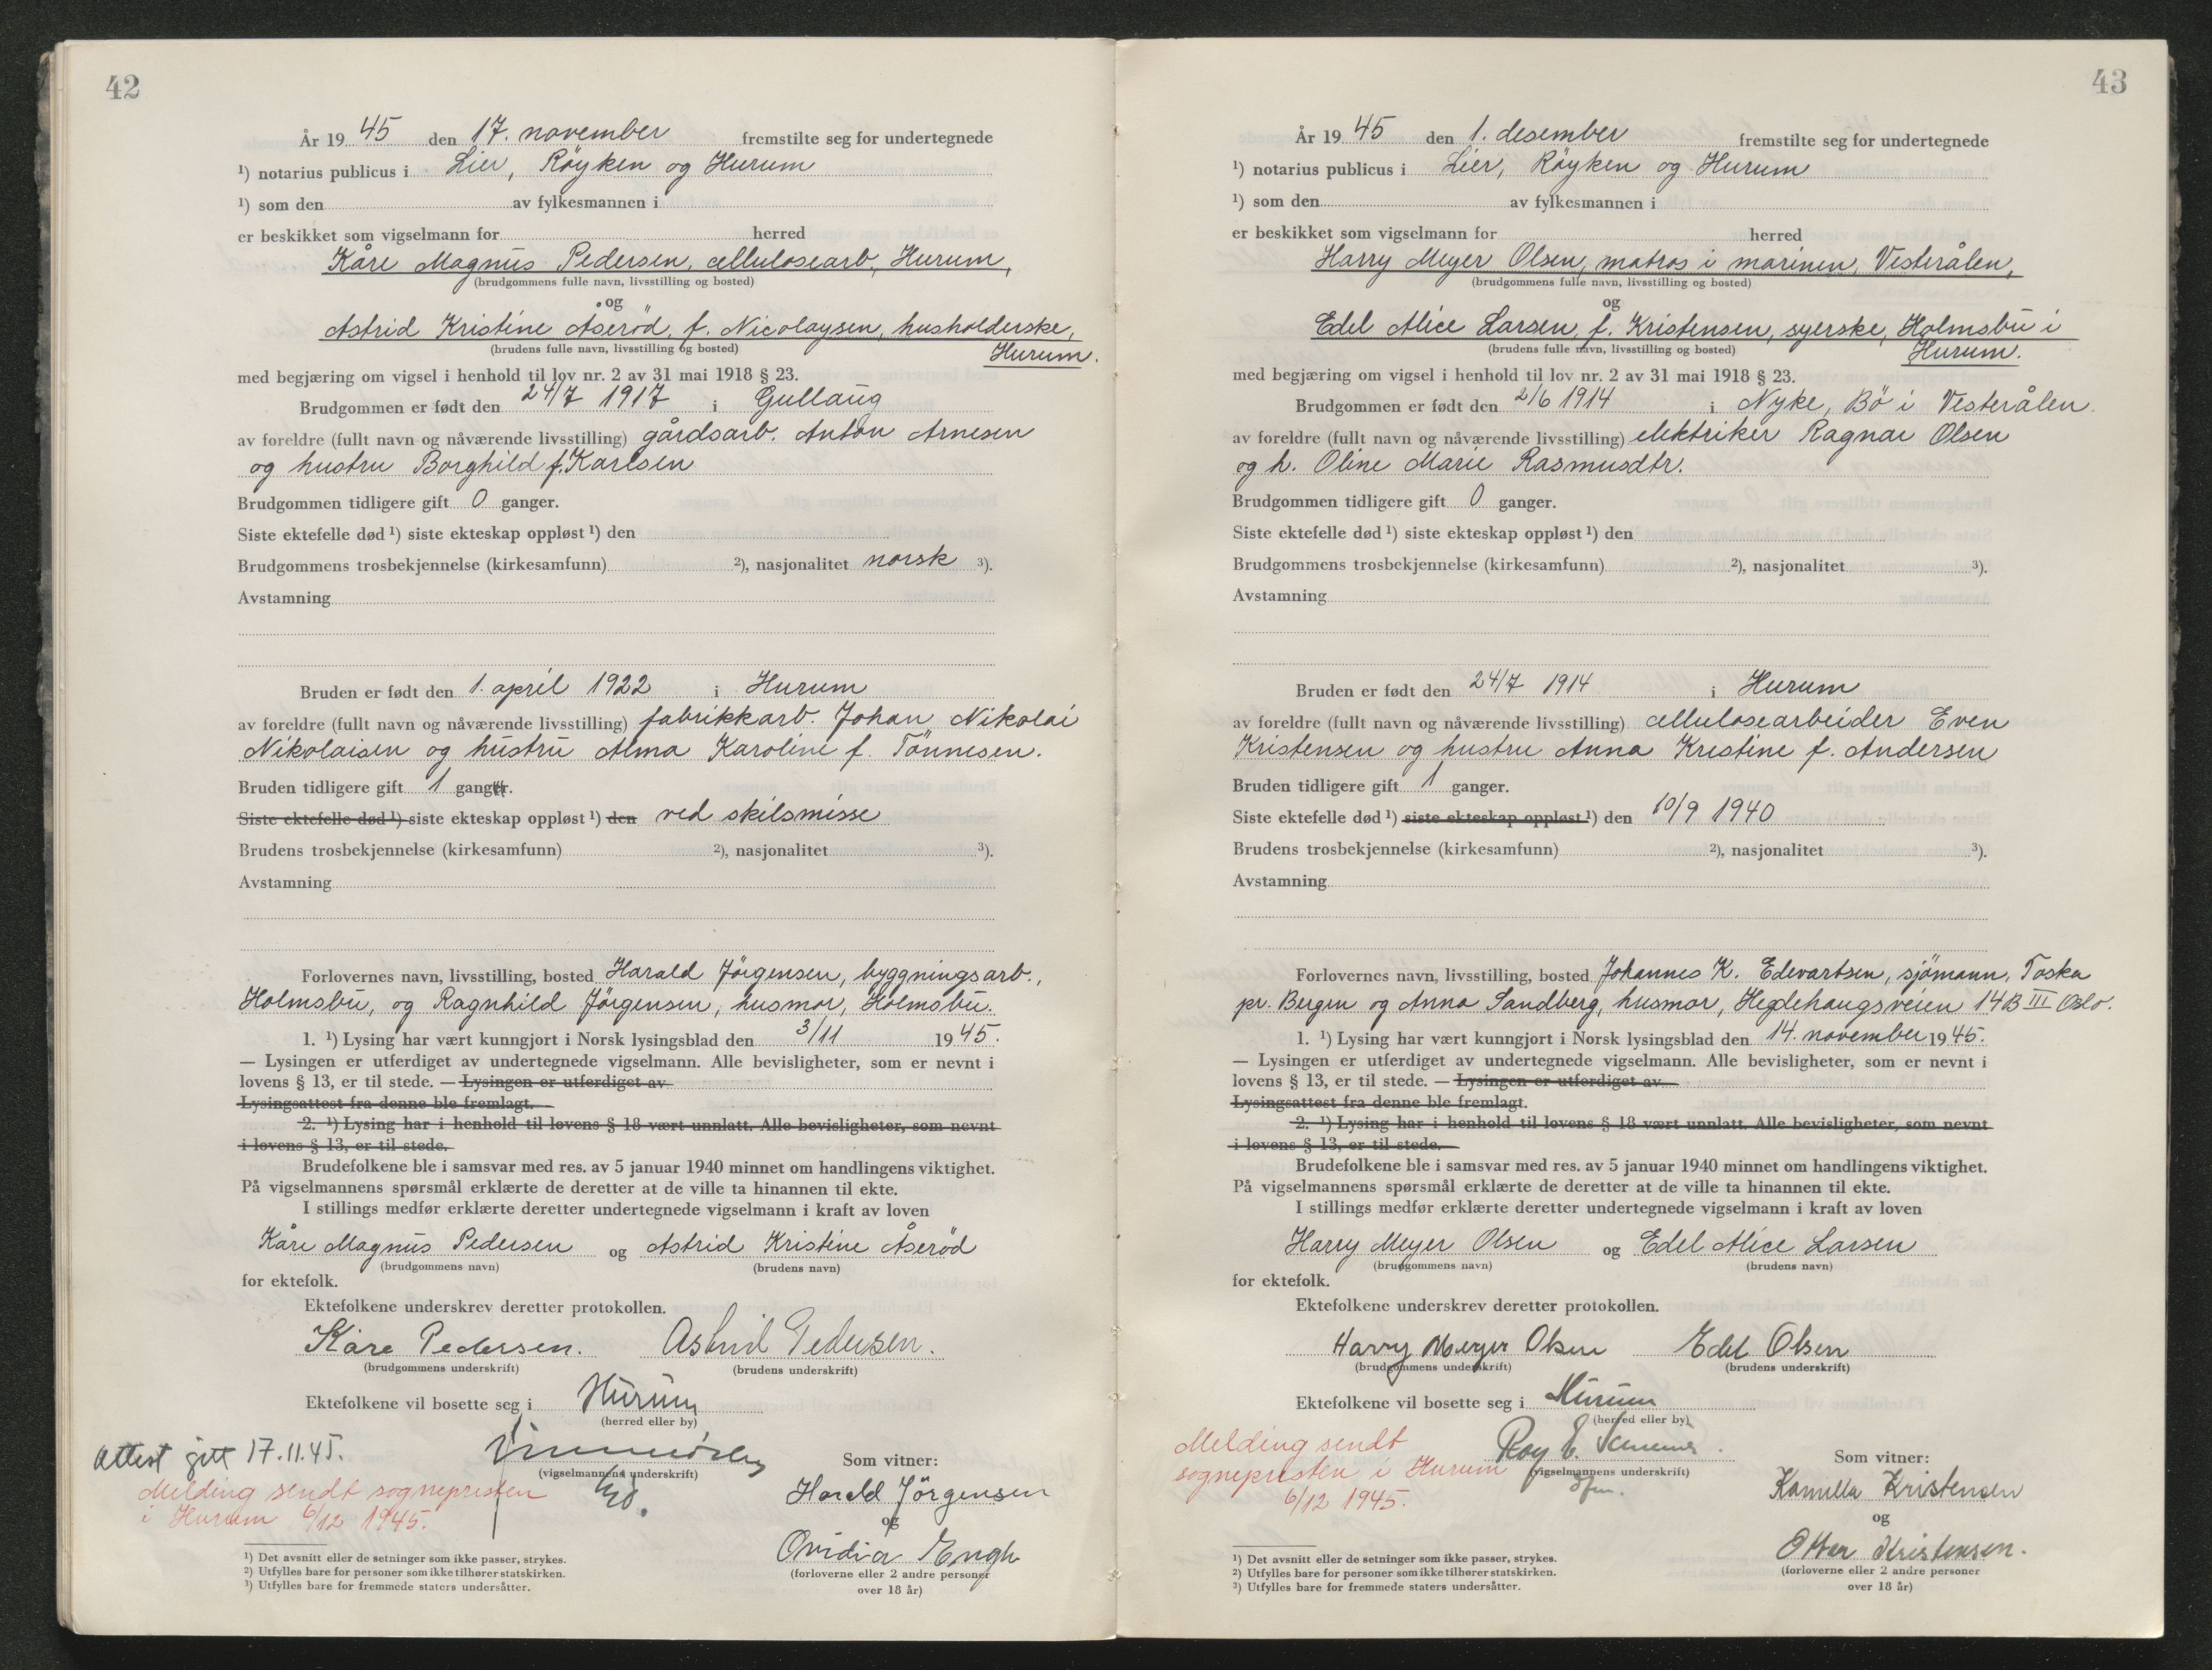 42
År 1945 den 17. november fremstilte seg for undertegnede
¹) notarius publicus i Lier, Röyken og Hurum
¹) som den av fylkesmannen i
er beskikket som vigselmann for herred
Kåre Magnus Pedersen, cellulosearb., Hurum,
(brudgommens fulle navn, livsstilling og bosted)
og
Astrid Kristine Aseröd, f. Nicolaysen, husholderske,
(brudens fulle navn, livsstilling og bosted) Hurum.
med begjæring om vigsel i henhold til lov nr. 2 av 31 mai 1918 § 23.
Brudgommen er født den 24/7 1917 i Gullaug
av foreldre (fullt navn og nåværende livsstilling) gårdsarb. Anton Arnesen
og hustru Borghild f. Karlsen
Brudgommen tidligere gift 0 ganger.
Siste ektefelle død ¹) siste ekteskap oppløst ¹) den
Brudgommens trosbekjennelse (kirkesamfunn) ²), nasjonalitet norsk ³).
Avstamning
Bruden er født den 1. april 1922 i Hurum
av foreldre (fullt navn og nåværende livsstilling) fabrikkarb. Johan Nikolai
Nikolaisen og hustru Alma Karoline f. Tönnesen.
Bruden tidligere gift 1 ganger.
Siste ektefelle død ¹) siste ekteskap oppløst ¹) den ved skilsmisse
Brudens trosbekjennelse (kirkesamfunn) ²), nasjonalitet ³).
Avstamning
Forlovernes navn, livsstilling, bosted Harald Jörgensen, byggningsarb.,
Holmsbu, og Ragnhild Jörgensen, husmor, Holmsbu.
1. ¹) Lysing har vært kunngjort i Norsk lysingsblad den 3/11 1945.
— Lysingen er utferdiget av undertegnede vigselmann. Alle bevisligheter, som er nevnt i
lovens § 13, er til stede. — Lysingen er utferdiget av
Lysingsattest fra denne ble fremlagt. —
2. ¹) Lysing har i henhold til lovens § 18 vært unnlatt. Alle bevisligheter, som nevnt
i lovens § 13, er til stede.
Brudefolkene ble i samsvar med res. av 5 januar 1940 minnet om handlingens viktighet.
På vigselmannens spørsmål erklærte de deretter at de ville ta hinannen til ekte.
I stillings medfør erklærte deretter undertegnede vigselmann i kraft av loven
Kåre Magnus Pedersen og Astrid Kristine Åseröd
(brudgommens navn) (brudens navn)
for ektefolk.
Ektefolkene underskrev deretter protokollen.
Kåre Pedersen. Astrid Pedersen.
(brudgommens underskrift) (brudens underskrift)
Ektefolkene vil bosette seg i Hurum
(herred eller by)
Attest gitt 17.11.45.
(vigselmannens underskrift)
Melding sendt sognepresten
i Hurum 6/12 1945.
Som vitner:
Harald Jörgensen
og
Ovidia Engh
(forloverne eller 2 andre personer
over 18 år)
¹) Det avsnitt eller de setninger som ikke passer, strykes.
²) Utfylles bare for personer som ikke tilhører statskirken.
³) Utfylles bare for fremmede staters undersåtter.
43
År 1945 den 1. desember fremstilte seg for undertegnede
¹) notarius publicus i Lier, Röyken og Hurum
¹) som den av fylkesmannen i
er beskikket som vigselmann for herred
Harry Meyer Olsen, matros i marinen, Vesterålen,
(brudgommens fulle navn, livsstilling og bosted)
og
Edel Alice Larsen, f. Kristensen, syerske, Holmsbu i
(brudens fulle navn, livsstilling og bosted) Hurum.
med begjæring om vigsel i henhold til lov nr. 2 av 31 mai 1918 § 23.
Brudgommen er født den 2/6 1914 i Nyke, Bö i Vesterålen.
av foreldre (fullt navn og nåværende livsstilling) elektriker Ragnar Olsen
og h. Oline Marie Rasmusdtr.
Brudgommen tidligere gift 0 ganger.
Siste ektefelle død ¹) siste ekteskap oppløst ¹) den
Brudgommens trosbekjennelse (kirkesamfunn) ²), nasjonalitet ³).
Avstamning
Bruden er født den 24/7 1914 i Hurum
av foreldre (fullt navn og nåværende livsstilling) cellulosearbeider Even
Kristensen og hustru Anna Kristine f. Andersen
Bruden tidligere gift 1 ganger.
Siste ektefelle død ¹) siste ekteskap oppløst ¹) den 10/9 1940
Brudens trosbekjennelse (kirkesamfunn) ²), nasjonalitet ³).
Avstamning
Forlovernes navn, livsstilling, bosted Johannes K. Edvartsen, sjömann, Toska
pr. Bergen og Anna Sandberg, husmor, Hegdehaugsveien 14B III Oslo.
1. ¹) Lysing har vært kunngjort i Norsk lysingsblad den 14. november 1945.
— Lysingen er utferdiget av undertegnede vigselmann. Alle bevisligheter, som er nevnt i
lovens § 13, er til stede. — Lysingen er utferdiget av
Lysingsattest fra denne ble fremlagt.
2. ¹) Lysing har i henhold til lovens § 18 vært unnlatt. Alle bevisligheter, som nevnt
i lovens § 13, er til stede.
Brudefolkene ble i samsvar med res. av 5 januar 1940 minnet om handlingens viktighet.
På vigselmannens spørsmål erklærte de deretter at de ville ta hinannen til ekte.
I stillings medfør erklærte deretter undertegnede vigselmann i kraft av loven
Harry Meyer Olsen og Edel Alice Larsen
(brudgommens navn) (brudens navn)
for ektefolk.
Ektefolkene underskrev deretter protokollen.
Harry Meyer Olsen Edel Olsen
(brudgommens underskrift) (brudens underskrift)
Ektefolkene vil bosette seg i Hurum
(herred eller by)
Melding sendt
sognepresten i Hurum
6/12 1945.
Roy E.
(vigselmannens underskrift)
Som vitner:
Kamilla Kristensen
og
Ottar Kristensen.
(forloverne eller 2 andre personer
over 18 år)
¹) Det avsnitt eller de setninger som ikke passer, strykes.
²) Utfylles bare for personer som ikke tilhører statskirken.
³) Utfylles bare for fremmede staters undersåtter.